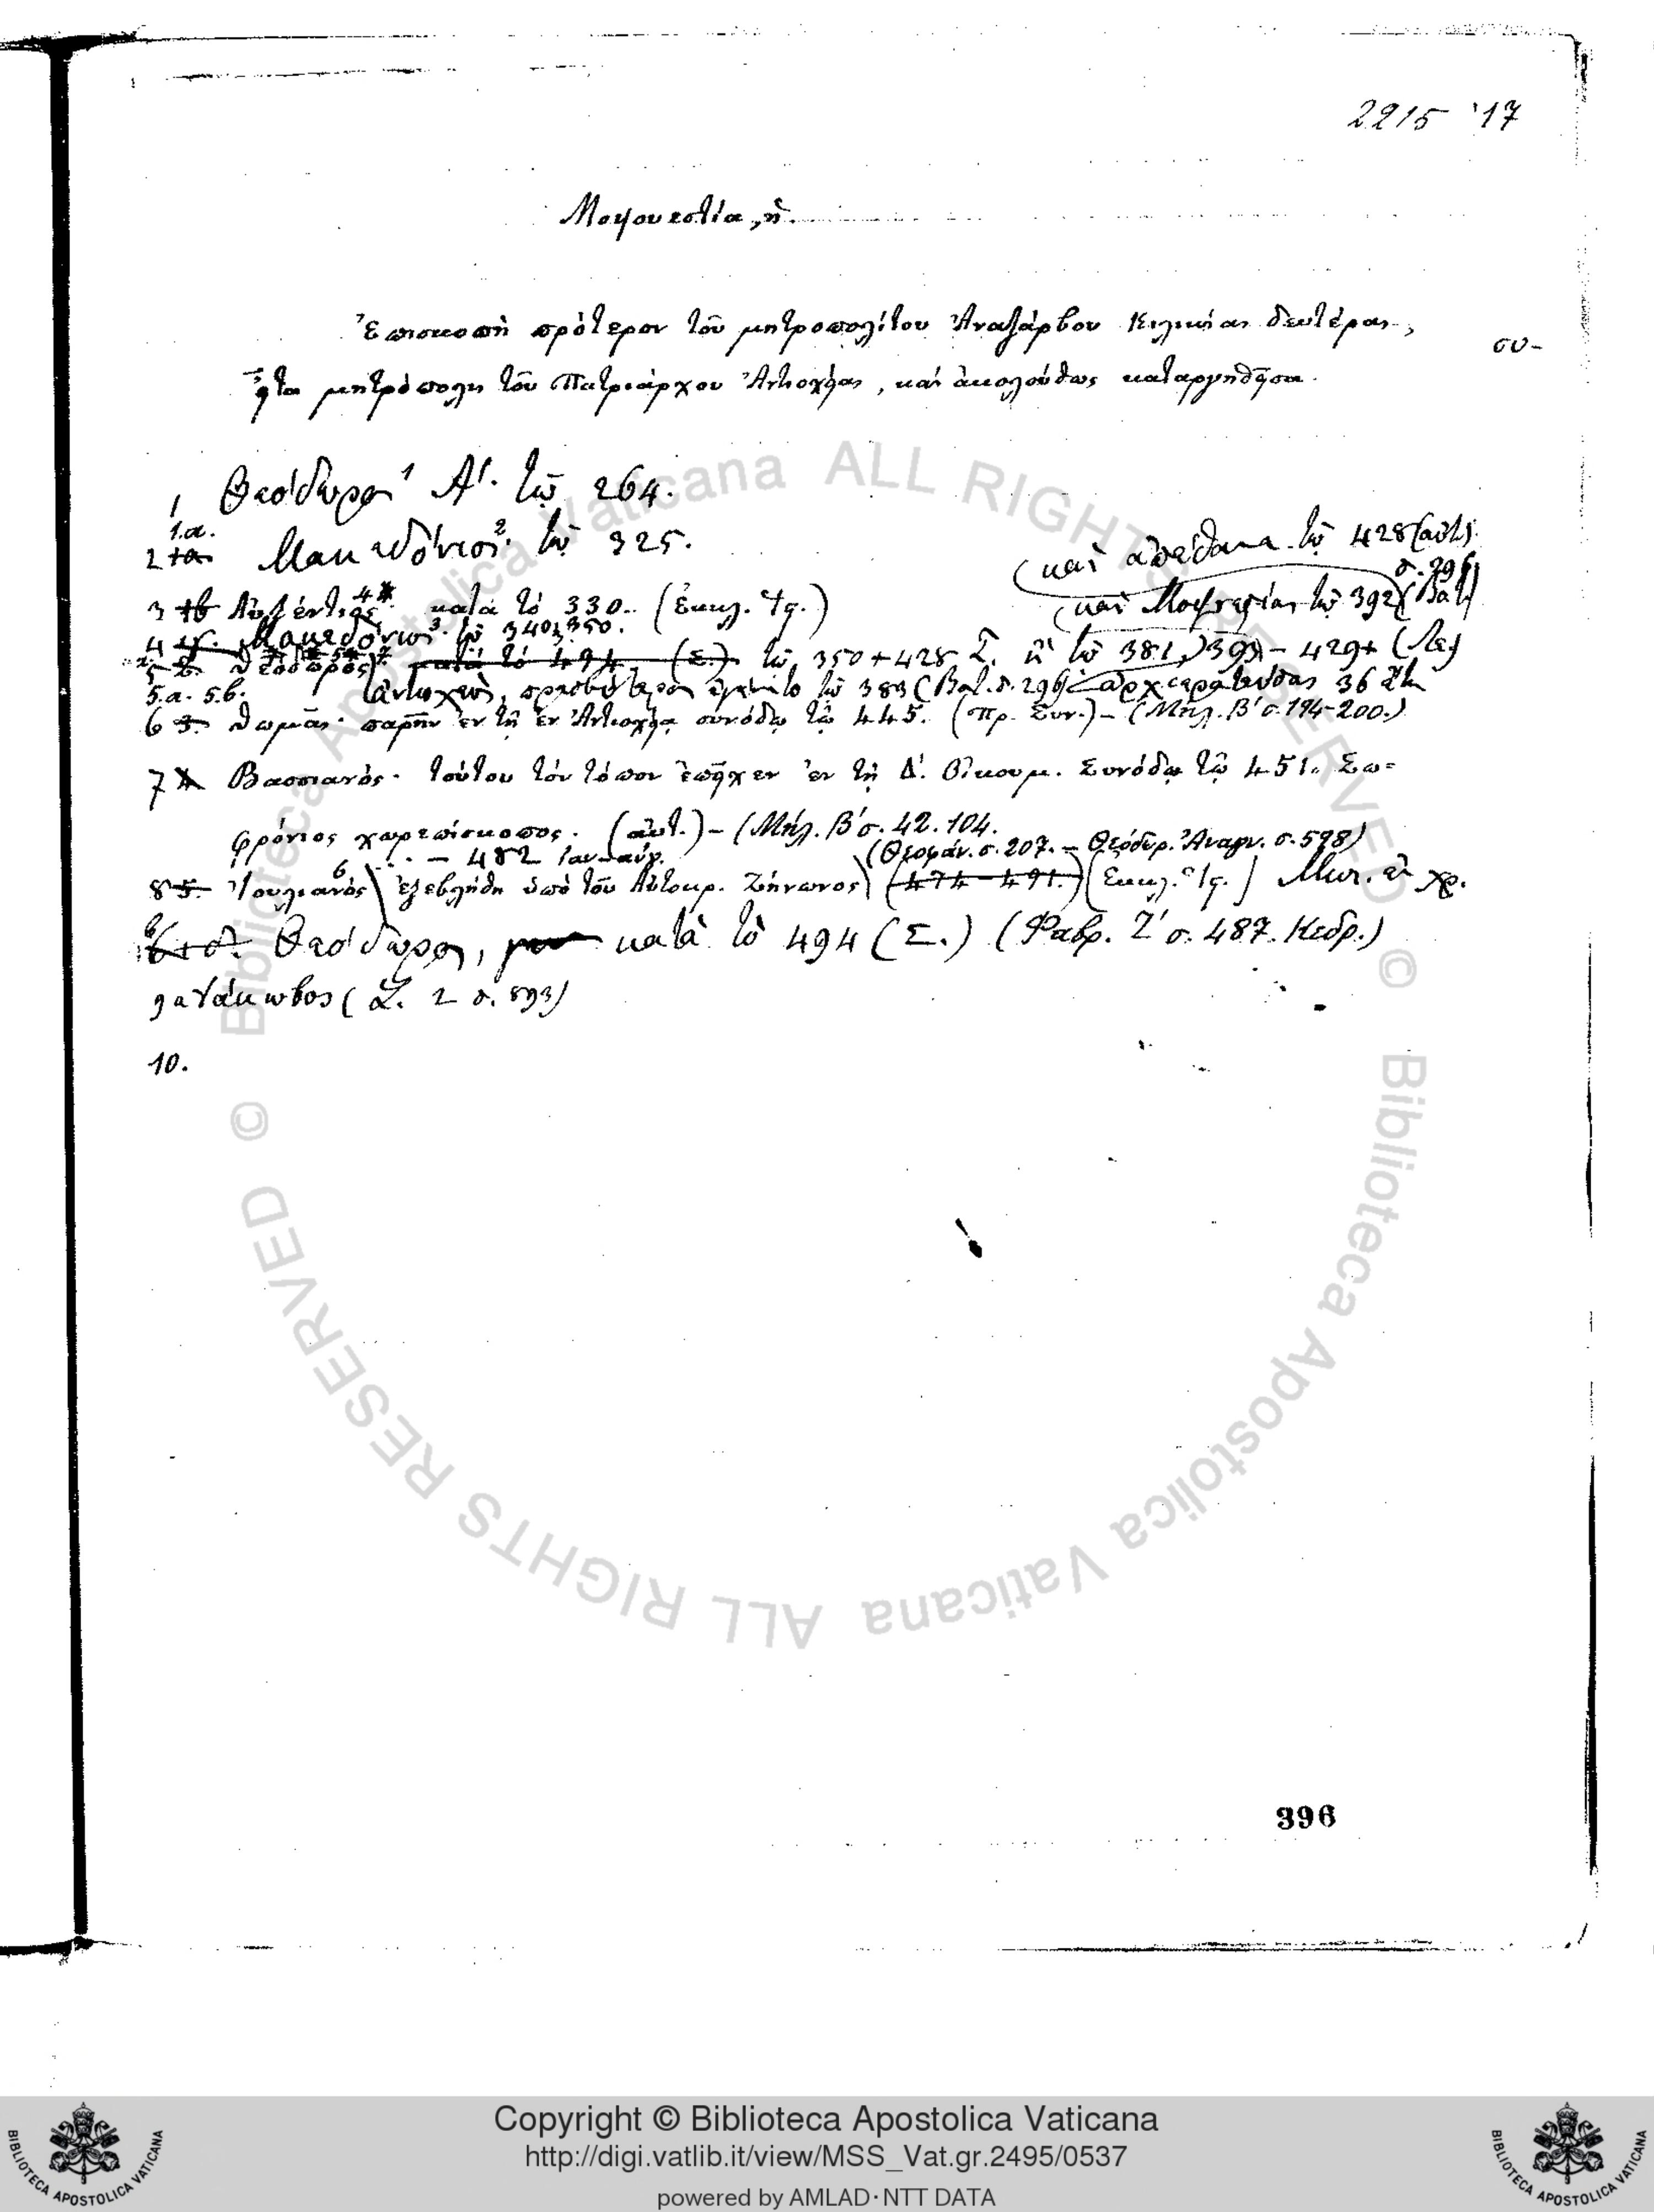 2215 '17
Μοψουεστία, ἡ.
Ἐπισκοπὴ πρότερον τοῦ μητροπολίτου Ἀναζάρβου Κιλικίας δευτέρας,
συ-
εἶτα μητρόπολις τοῦ Πατριάρχου Ἀντιοχείας, καὶ ἀκολούθως καταργηθεῖσα.
1 Θεόδωρος 1 Α'. τῷ 264.
1.α.
2 Μακεδόνιος 2. τῷ 325.
(καὶ ἀπέθανε τῷ 428 (αὐτ.)
σ. 296
3 Αὐξέντιος 4 κατὰ τὸ 330. (Ἐκκλ. Ἱς.)
(καὶ Μοψουεστίας τῷ 392 (Βατ)
4 Μακεδόνιος 3. τῷ 340, 350.
5 Θεόδωρος κατὰ τὸ 494. (Σ.) τῷ 350+428 Σ. ἢ τῷ 381, 393 - 429+ (Λε)
5.α. 5.β. (Ἀντιοχεὺς, πρεσβύτερος ἐγένετο τῷ 383 (Βατ. σ. 296) ἀρχιερατεύσας 36 ἔτη
6 Θωμᾶς. παρῆν ἐν τῇ ἐν Ἀντιοχείᾳ συνόδῳ τῷ 445. (πρ. Συν.) - (Μήλ. Β' σ. 194-200.)
7 Βασσιανός. τούτου τὸν τόπον ἐπεῖχεν ἐν τῇ Δ'. Οἰκουμ. Συνόδῳ τῷ 451. Σω=
φρόνιος χωρεπίσκοπος. (αὐτ.) - (Μήλ. Β' σ. 42. 104.
- 482 (Θεοφάν. σ. 207. - Θεόδωρ. Ἀναγν. σ. 578)
8 Ἰουλιανὸς 6 ἐξεβλήθη ὑπὸ τοῦ Αὐτοκρ. Ζήνωνος (474-491.) (Ἐκκλ. Ἱς.)
Θεόδωρος, κατὰ τὸ 494 (Σ.) (Φαβρ. Ζ' σ. 487. Κεδρ.)
9α Ἰάκωβος (Σ. 2 σ. 893)
10.
396
Copyright © Biblioteca Apostolica Vaticana
http://digi.vatlib.it/view/MSS_Vat.gr.2495/0537
powered by AMLAD·NTT DATA
BIBLIOTECA APOSTOLICA VATICANA
BIBLIOTECA APOSTOLICA VATICANA
© Biblioteca Apostolica Vaticana ALL RIGHTS RESERVED
© Biblioteca Apostolica Vaticana ALL RIGHTS RESERVED